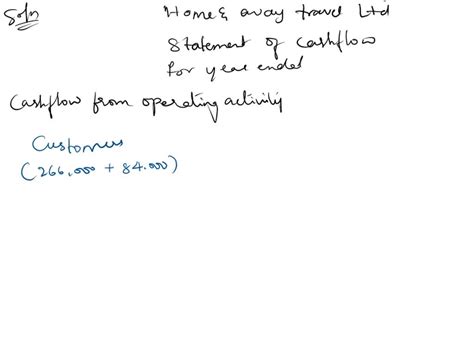 Soln
Home & away travel Ltd
Statement of cashflow
for year ended
Cashflow from operating activity
Customers
(266,000 + 84.000)